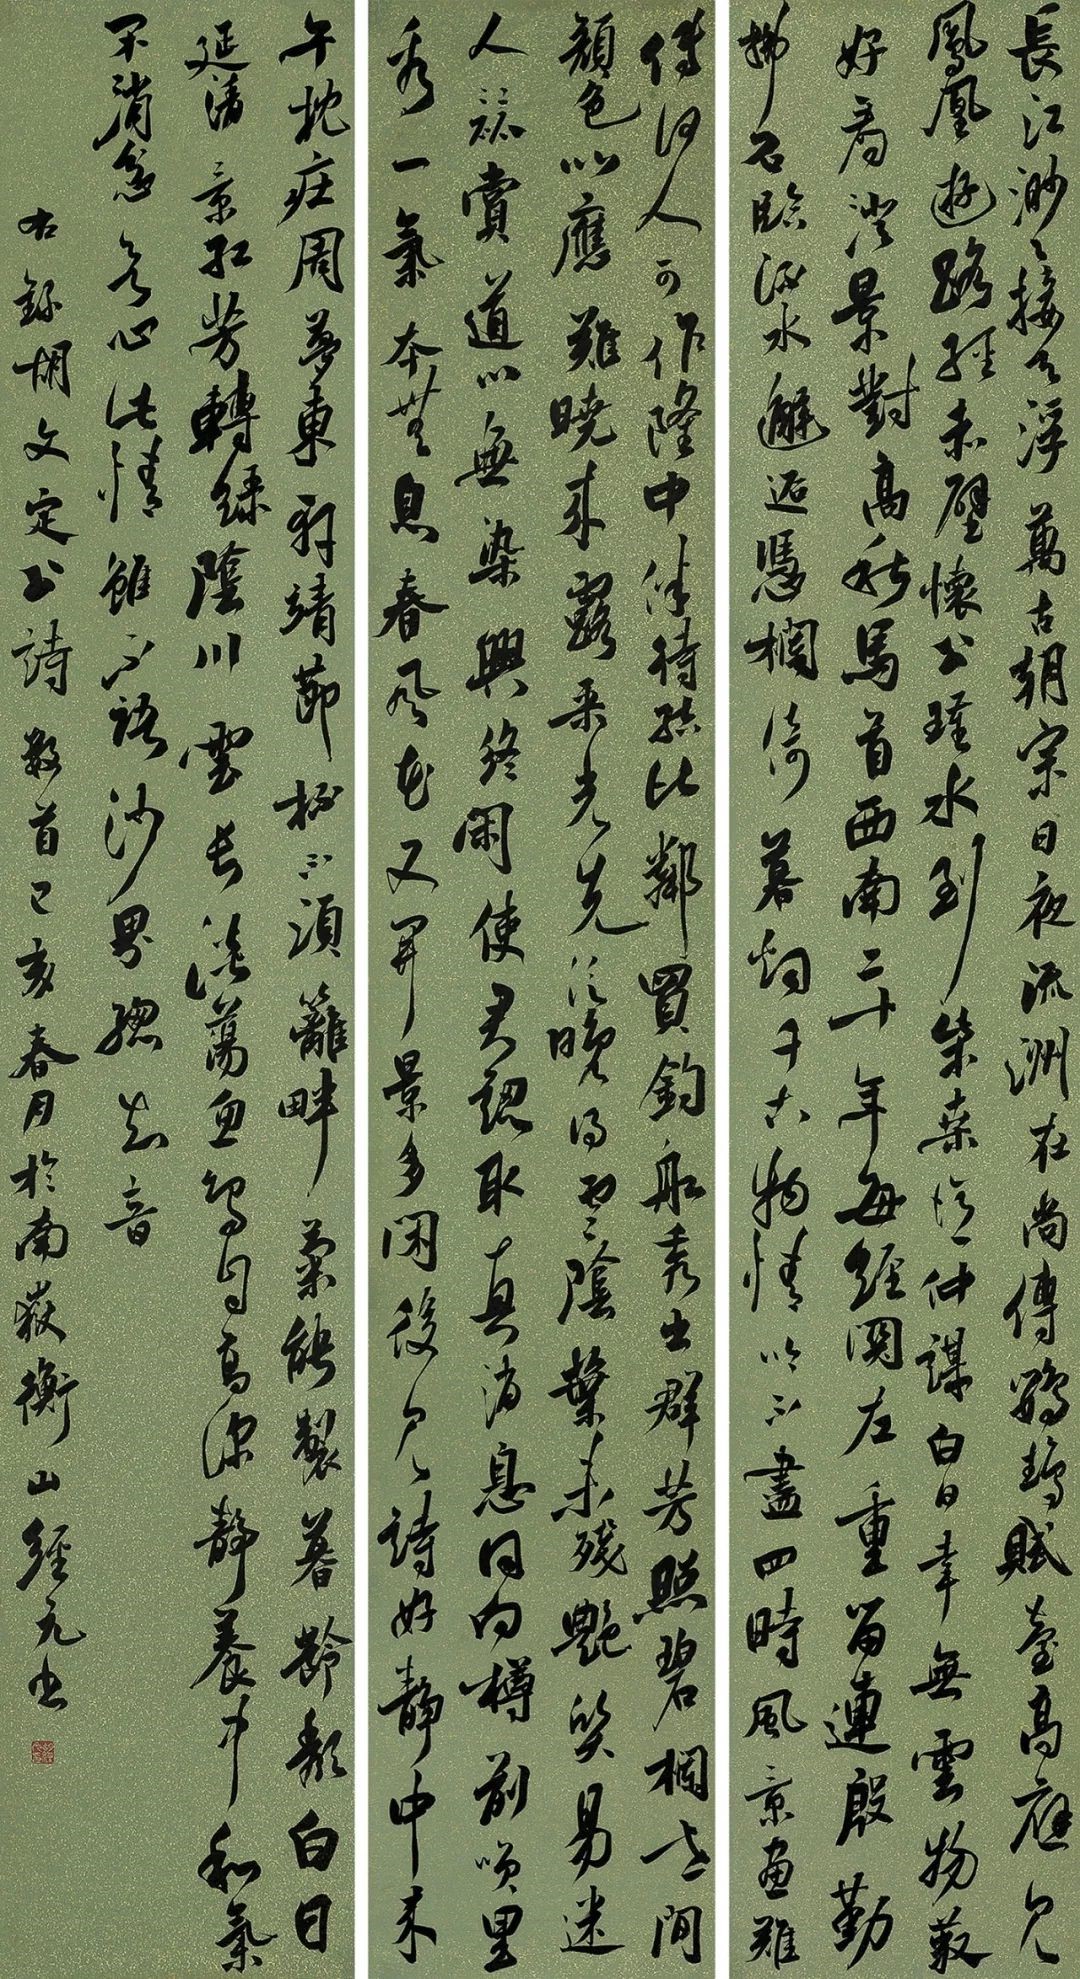 長江渺渺接天浮萬古朝宗日夜流洲在尚傳鸚鵡賦臺高應見
鳳凰遊路經赤壁懷公瑾水到柴桑憶仲謀白日幸無雲物蔽
好看澄景對高秋馬首西南二十年每經關左重留連殷勤
拂石臨流水邂逅憑欄倚暮烟千古物情吟不盡四時風景畫難
傳何人可作隆中伴待結比鄰買釣船秀出群芳照碧欄世間
顏色以應難曉來露采光先泛晚得雲陰葉未殘艷質易迷
人謾賞道心無染興終閑使君認取真消息同向樽前嘆里
秀一氣本無息春風花又開景多閑後見詩好靜中來
午枕莊周夢東軒靖節桮不須籬畔菊能製暮齡頹白日
延清景紅芳轉綠陰川雲長淡蕩魚鳥自高深靜養中和氣
不消忿欲心此情雖不語沙界總知音
右錄胡文定公詩數首己亥春月於南嶽衡山經元書